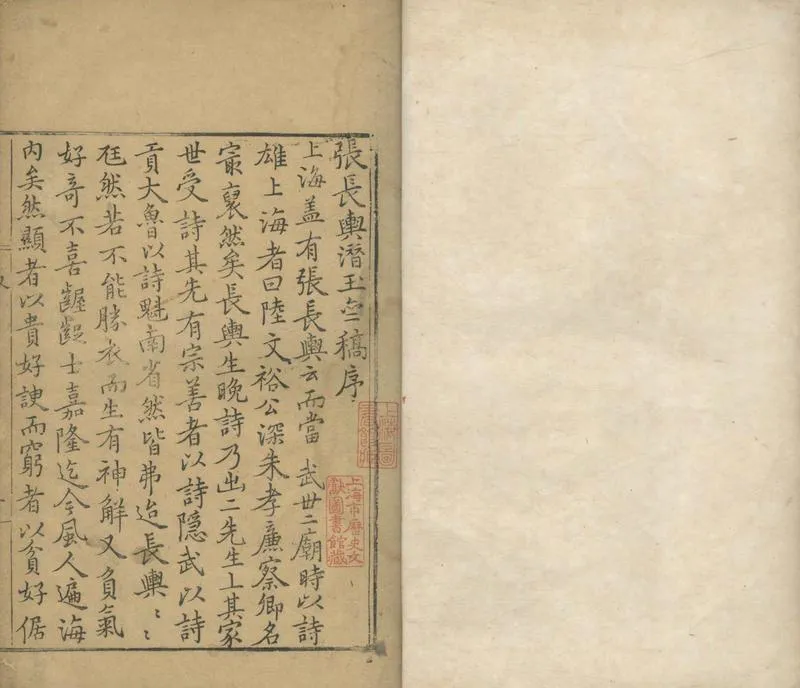 張長輿潛玉齋稿序
上海盖有張長輿云而當 武世二廟時以詩
雄上海者曰陸文裕公深朱孝廉察卿名
㝡褎然矣長輿生晚詩乃出二先生上其家
世受詩其先有宗善者以詩隠武以詩
貢大魯以詩魁南省然皆弗迨長輿〻〻
尫然若不能勝衣而生有神解又負氣
好竒不喜齷齪士嘉隆迄今風人遍海
内矣然顯者以貴好諛而窮者以貧好倨
上海圖書館藏
上海市歷史文獻圖書館藏